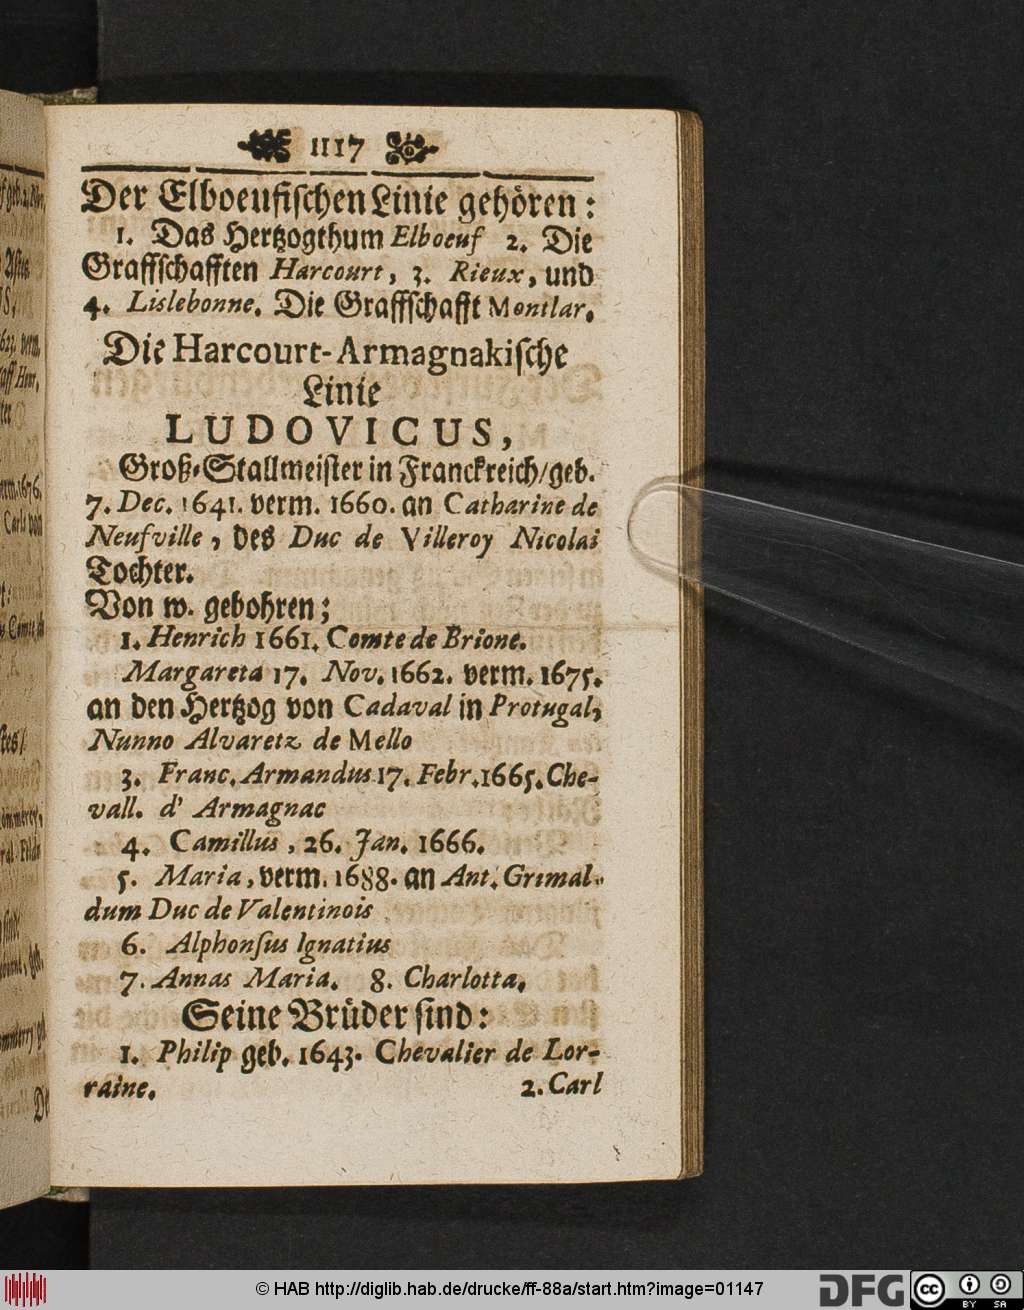 1117
Der Elboeufischen Linie gehören:
1. Das Hertzogthum Elboeuf 2. Die
Graffschafften Harcourt, 3. Rieux, und
4. Lislebonne. Die Graffschafft Montlar.
Die Harcourt-Armagnakische
Linie
LUDOVICUS,
Groß-Stallmeister in Franckreich/geb.
7. Dec. 1641. verm. 1660. an Catharine de
Neufville, des Duc de Villeroy Nicolai
Tochter.
Von w. gebohren;
1. Henrich 1661. Comte de Brione.
Margareta 17. Nov. 1662. verm. 1675.
an den Hertzog von Cadaval in Protugal,
Nunno Alvaretz de Mello
3. Franc. Armandus 17. Febr. 1665. Che-
vall. d' Armagnac
4. Camillus, 26. Jan. 1666.
5. Maria, verm. 1688. an Ant. Grimal-
dum Duc de Valentinois
6. Alphonsus Ignatius
7. Annas Maria. 8. Charlotta.
Seine Brüder sind:
1. Philip geb. 1643. Chevalier de Lor-
raine. 2. Carl
© HAB http://diglib.hab.de/drucke/ff-88a/start.htm?image=01147
DFG
cc BY SA